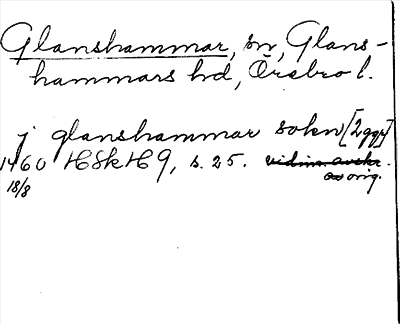 Glanshammar, sn, Glans-
hammars hd, Örebro l.
j glanshammar sokn [2 ggr]
1460 HSkH 9, s. 25. vidim. avskr.
18/8 av orig.